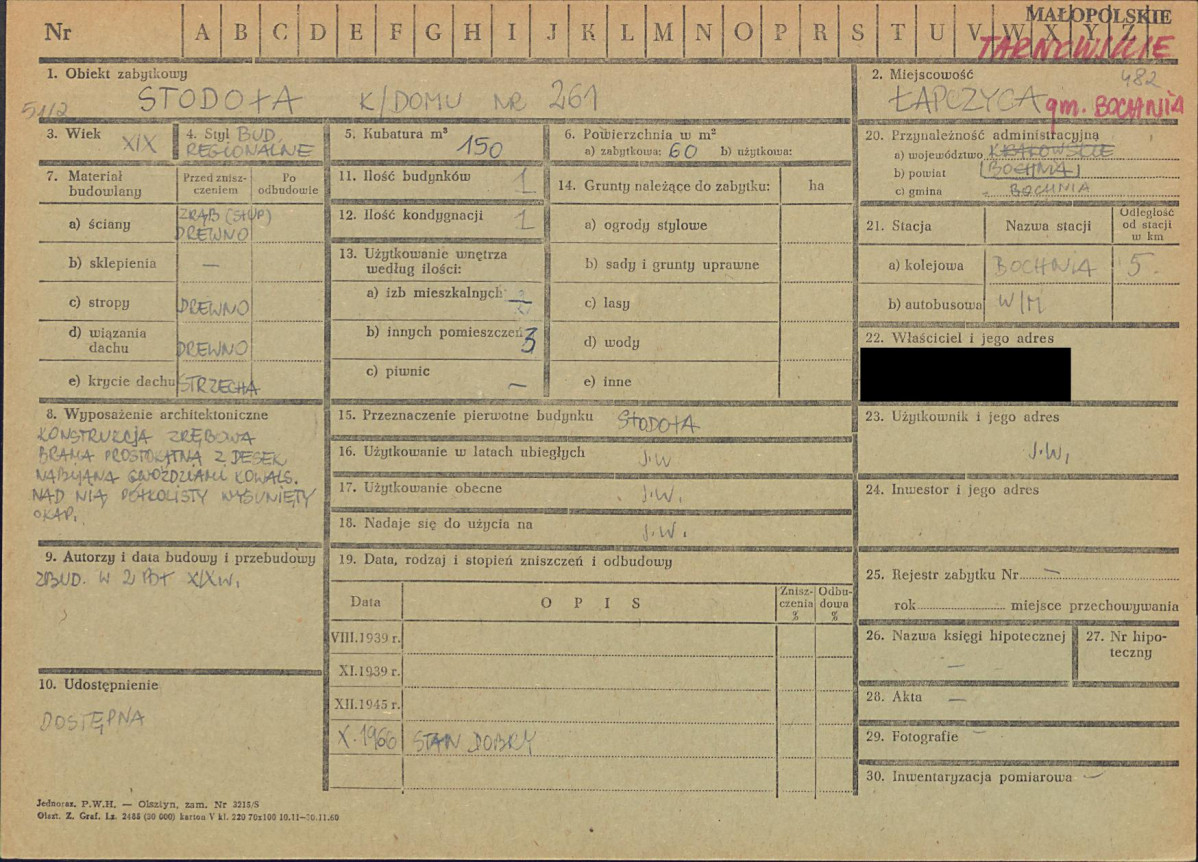 Nr A B C D E F G H I J K L M N O P R S T U V W X Y Z
MAŁOPOLSKIE
TARNOWSKIE
1. Obiekt zabytkowy
51/2
STODOŁA K/DOMU NR 261
2. Miejscowość
482
ŁAPCZYCA gm. BOCHNIA
3. Wiek XIX
4. Styl BUD. REGIONALNE
5. Kubatura m³ 150
6. Powierzchnia w m²
a) zabytkowa: 60 b) użytkowa:
7. Materiał budowlany
Przed zniszczeniem
Po odbudowie
a) ściany ZRĄB (SŁUP) DREWNO
b) sklepienia —
c) stropy DREWNO
d) wiązania dachu DREWNO
e) krycie dachu STRZECHA
8. Wyposażenie architektoniczne
KONSTRUKCJA ZRĘBOWA
BRAMA PROSTOKĄTNA Z DESEK
NABIJANA GWOŹDZIAMI KOWALS.
NAD NIĄ PÓŁKOLISTY WYSUNIĘTY
OKAP.
9. Autorzy i data budowy i przebudowy
ZBUD. W 2 POŁ XIX W.
10. Udostępnienie
DOSTĘPNA
11. Ilość budynków 1
12. Ilość kondygnacji 1
13. Użytkowanie wnętrza według ilości:
a) izb mieszkalnych
b) innych pomieszczeń 3
c) piwnic —
14. Grunty należące do zabytku: ha
a) ogrody stylowe
b) sady i grunty uprawne
c) lasy
d) wody
e) inne
15. Przeznaczenie pierwotne budynku STODOŁA
16. Użytkowanie w latach ubiegłych J.W
17. Użytkowanie obecne J.W.
18. Nadaje się do użycia na J.W.
19. Data, rodzaj i stopień zniszczeń i odbudowy
Data OPIS Zniszczenia % Odbudowa %
VIII.1939 r.
XI.1939 r.
XII.1945 r.
X.1966 STAN DOBRY
20. Przynależność administracyjna
a) województwo KRAKOWSKIE
b) powiat BOCHNIA
c) gmina BOCHNIA
21. Stacja
Nazwa stacji
Odległość od stacji w km
a) kolejowa BOCHNIA 5.
b) autobusowa W/M
22. Właściciel i jego adres
23. Użytkownik i jego adres
J.W.
24. Inwestor i jego adres
25. Rejestr zabytku Nr —
rok miejsce przechowywania
26. Nazwa księgi hipotecznej —
27. Nr hipoteczny
28. Akta —
29. Fotografie —
30. Inwentaryzacja pomiarowa —
Jednoraz. P.W.H. — Olsztyn, zam. Nr 3215/S
Olszt. Z. Graf. Lz. 2485 (20 000) karton V kl. 220 70x100 10.11—30.11.60